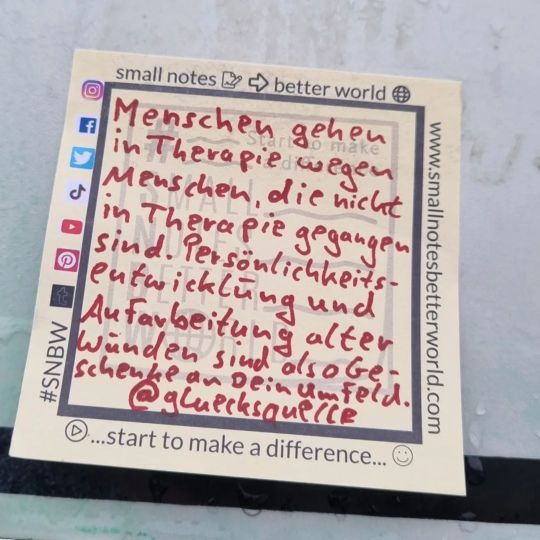 small notes better world
Menschen gehen
in Therapie wegen
Menschen, die nicht
in Therapie gegangen
sind. Persönlichkeits-
entwicklung und
Aufarbeitung alter
Wunden sind also Ge-
schenke an Dein Umfeld.
@gluecksquelle
...start to make a difference...
#SNBW
www.smallnotesbetterworld.com
Start to make
a difference
#
SMALL
NOTES
BETTER
WORLD